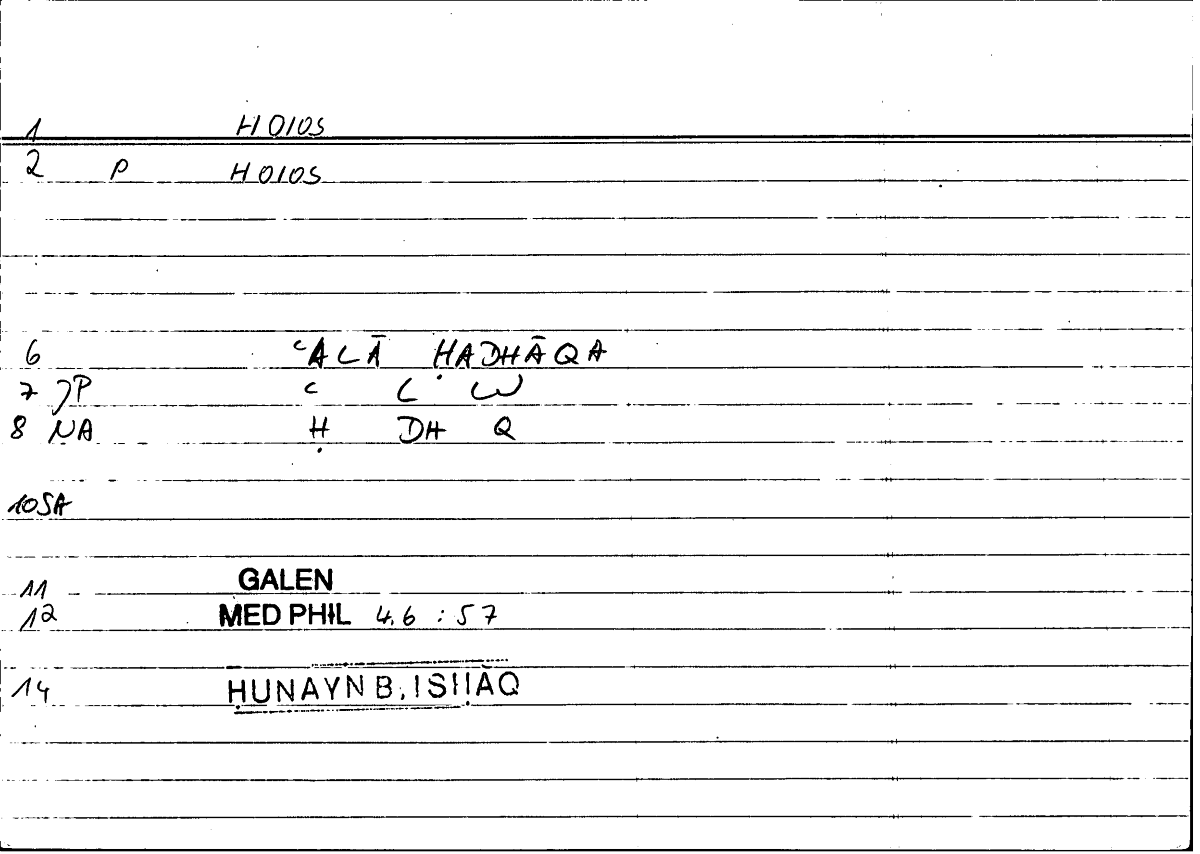 1 HOIOS
2 P HOIOS
6 ʿALĀ ḤADHĀQA
7 JP ʿ L W
8 NA Ḥ DH Q
10 SA
11 GALEN
12 MED PHIL 4,6 : 57
14 ḤUNAYN B. ISḤĀQ